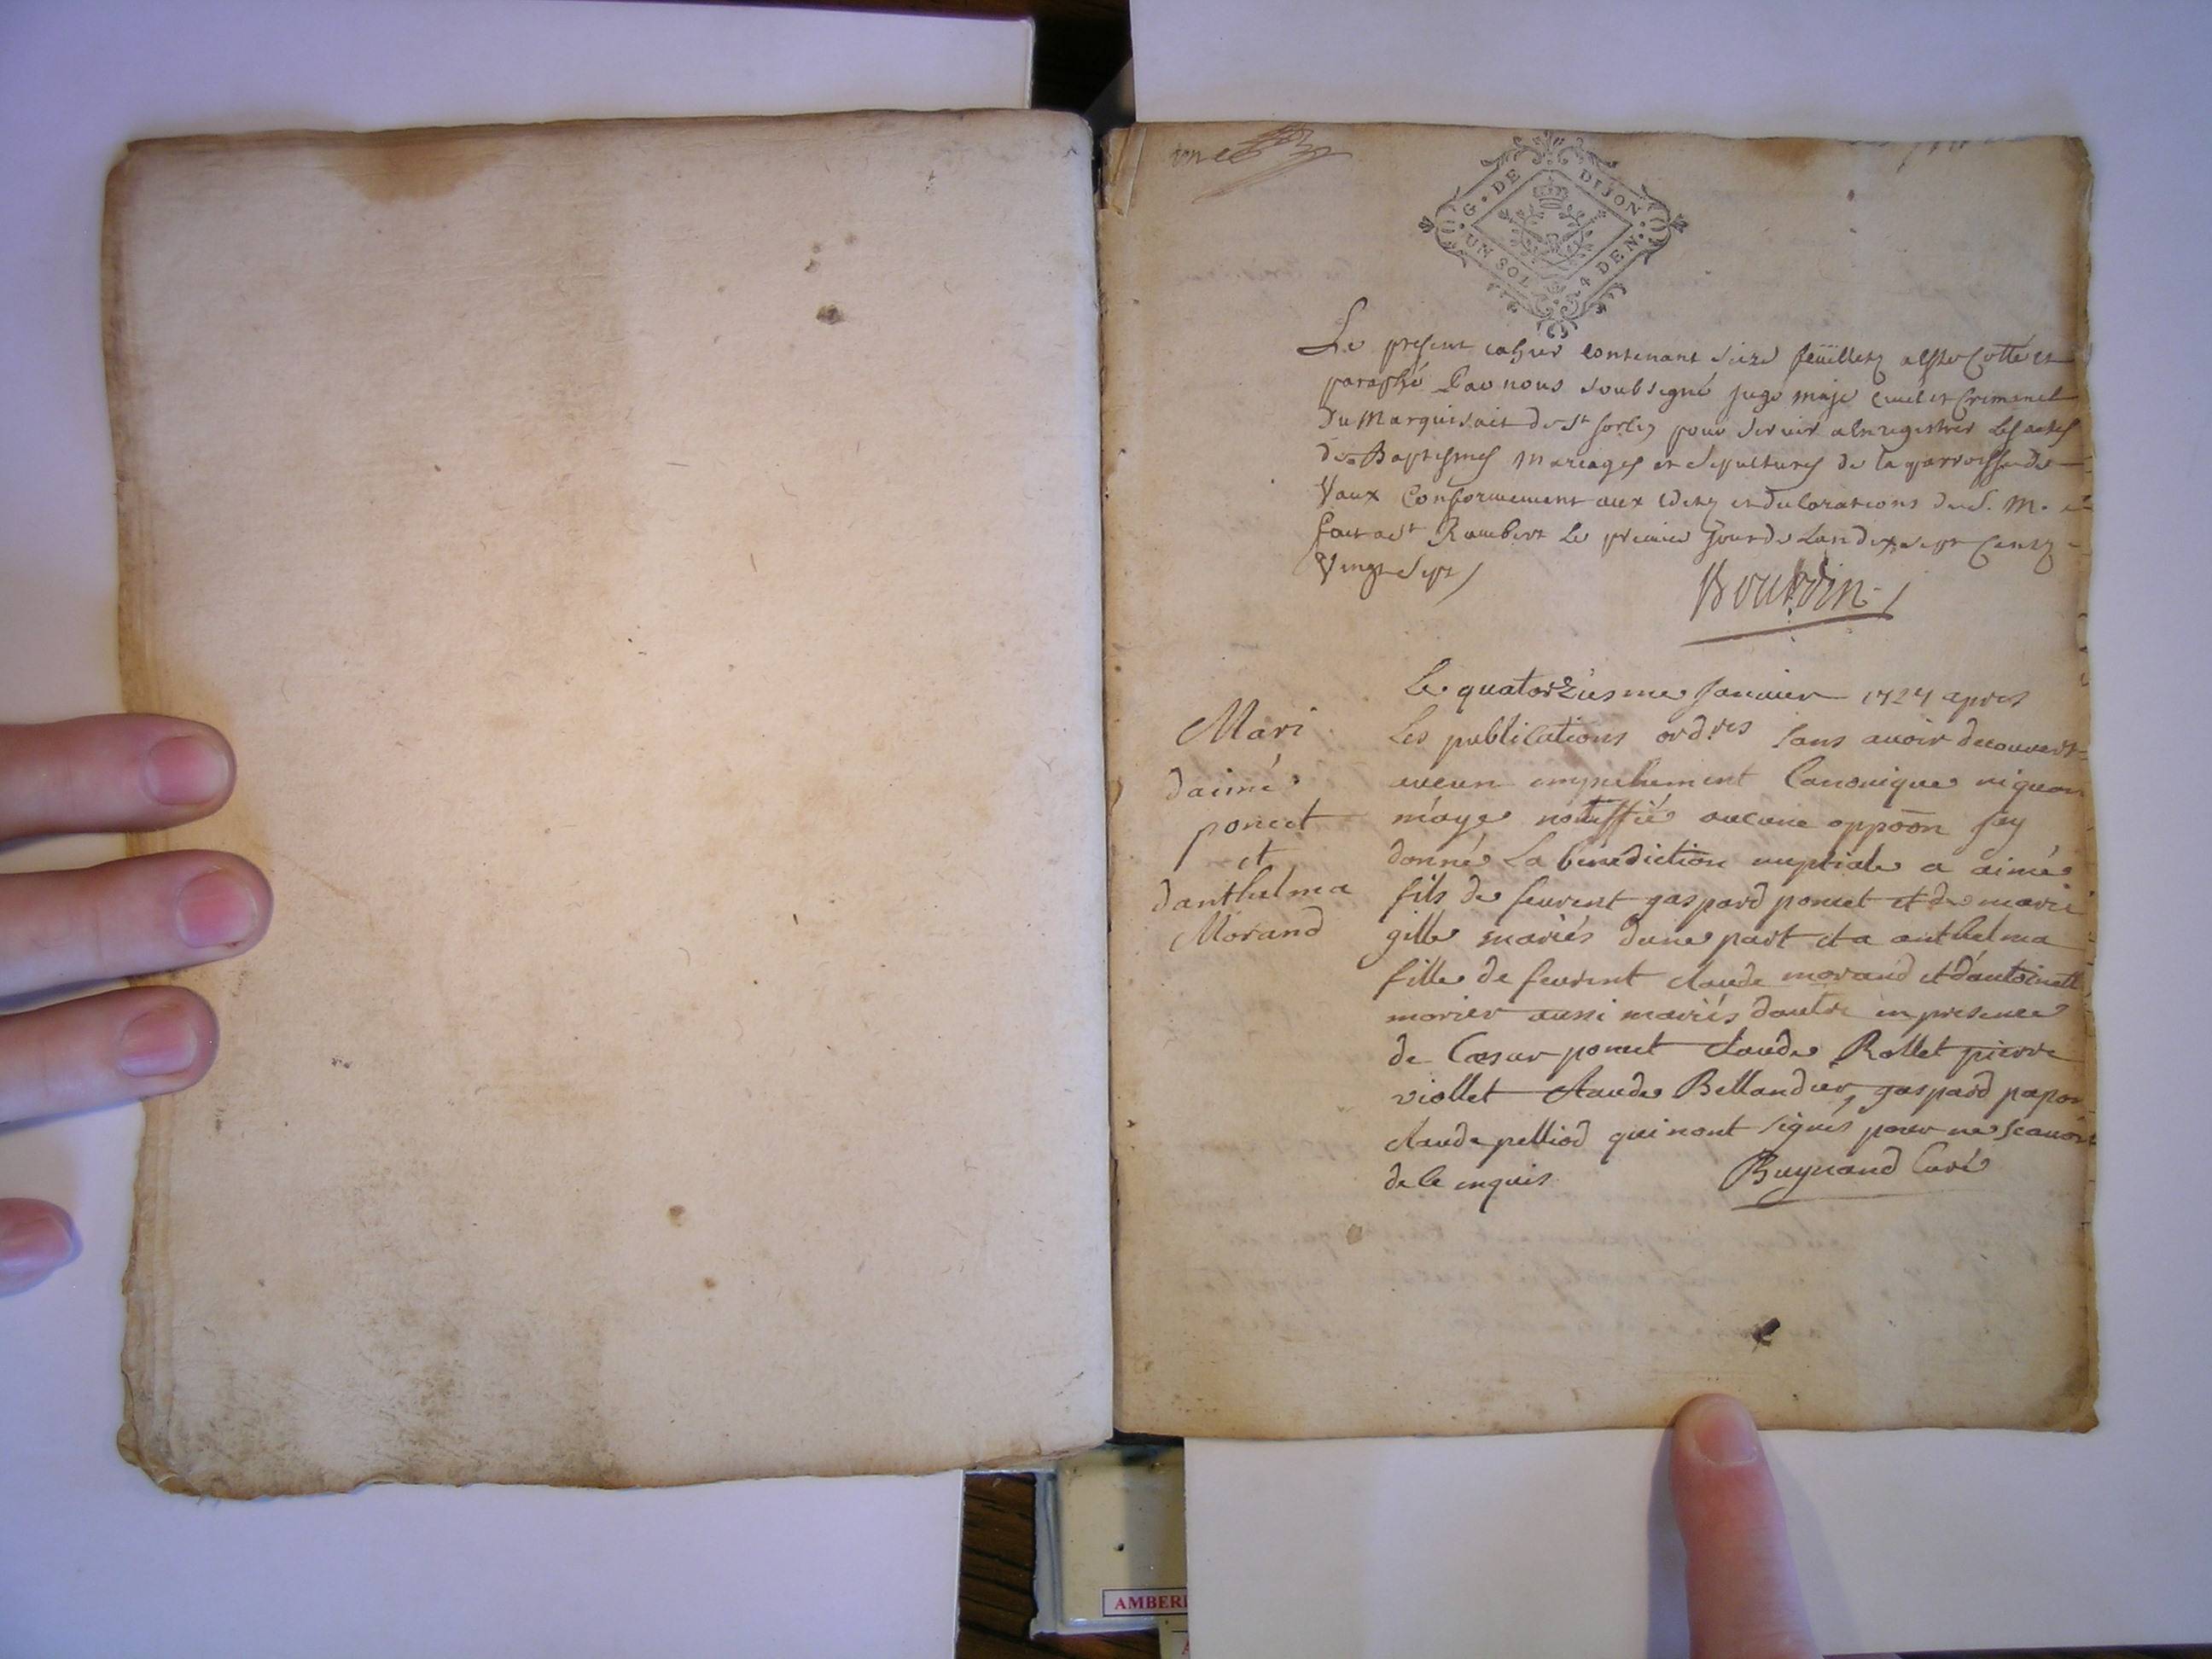 une
G. DE DIJON
UN SOL 4 DEN.
Le present cahier contenant seize feüilletz a esté cotté et
paraphé Par nous soubsigné juge maje civil et Criminel
Du Marquisait de St sorlin pour servir a Enregistrer Les actes
de Baptesmes Mariages et sepultures de la parroisse de
Vaux Conformement aux Editz et declarations de S. M.
fait a St Rambert Le premier Jour de Lan dix sept Centz
Vingt sept
Bourdin
Mari
daimé
poncet
et
danthelma
Morand
Le quatorziesme Januier 1727 apres
Les publications ord.res sans auoir decouvert
aucun empechement Canonique ni quon
m'aye notiffié aucune oppoõn jay
donné La bénédiction nuptiale a aimé
fils de feurent gaspard poncet et de marie
gille mariés dune part et a anthelma
fille de feurent claude morand et d'antoinette
morier aussi mariés dautre en presence
de Cæsar poncet claude Rollet pierre
viollet claude Bellandier, gaspard papon
claude pelliod qui nont signés pour ne scauoir
de ce enquis
Buynand Curé
AMBER